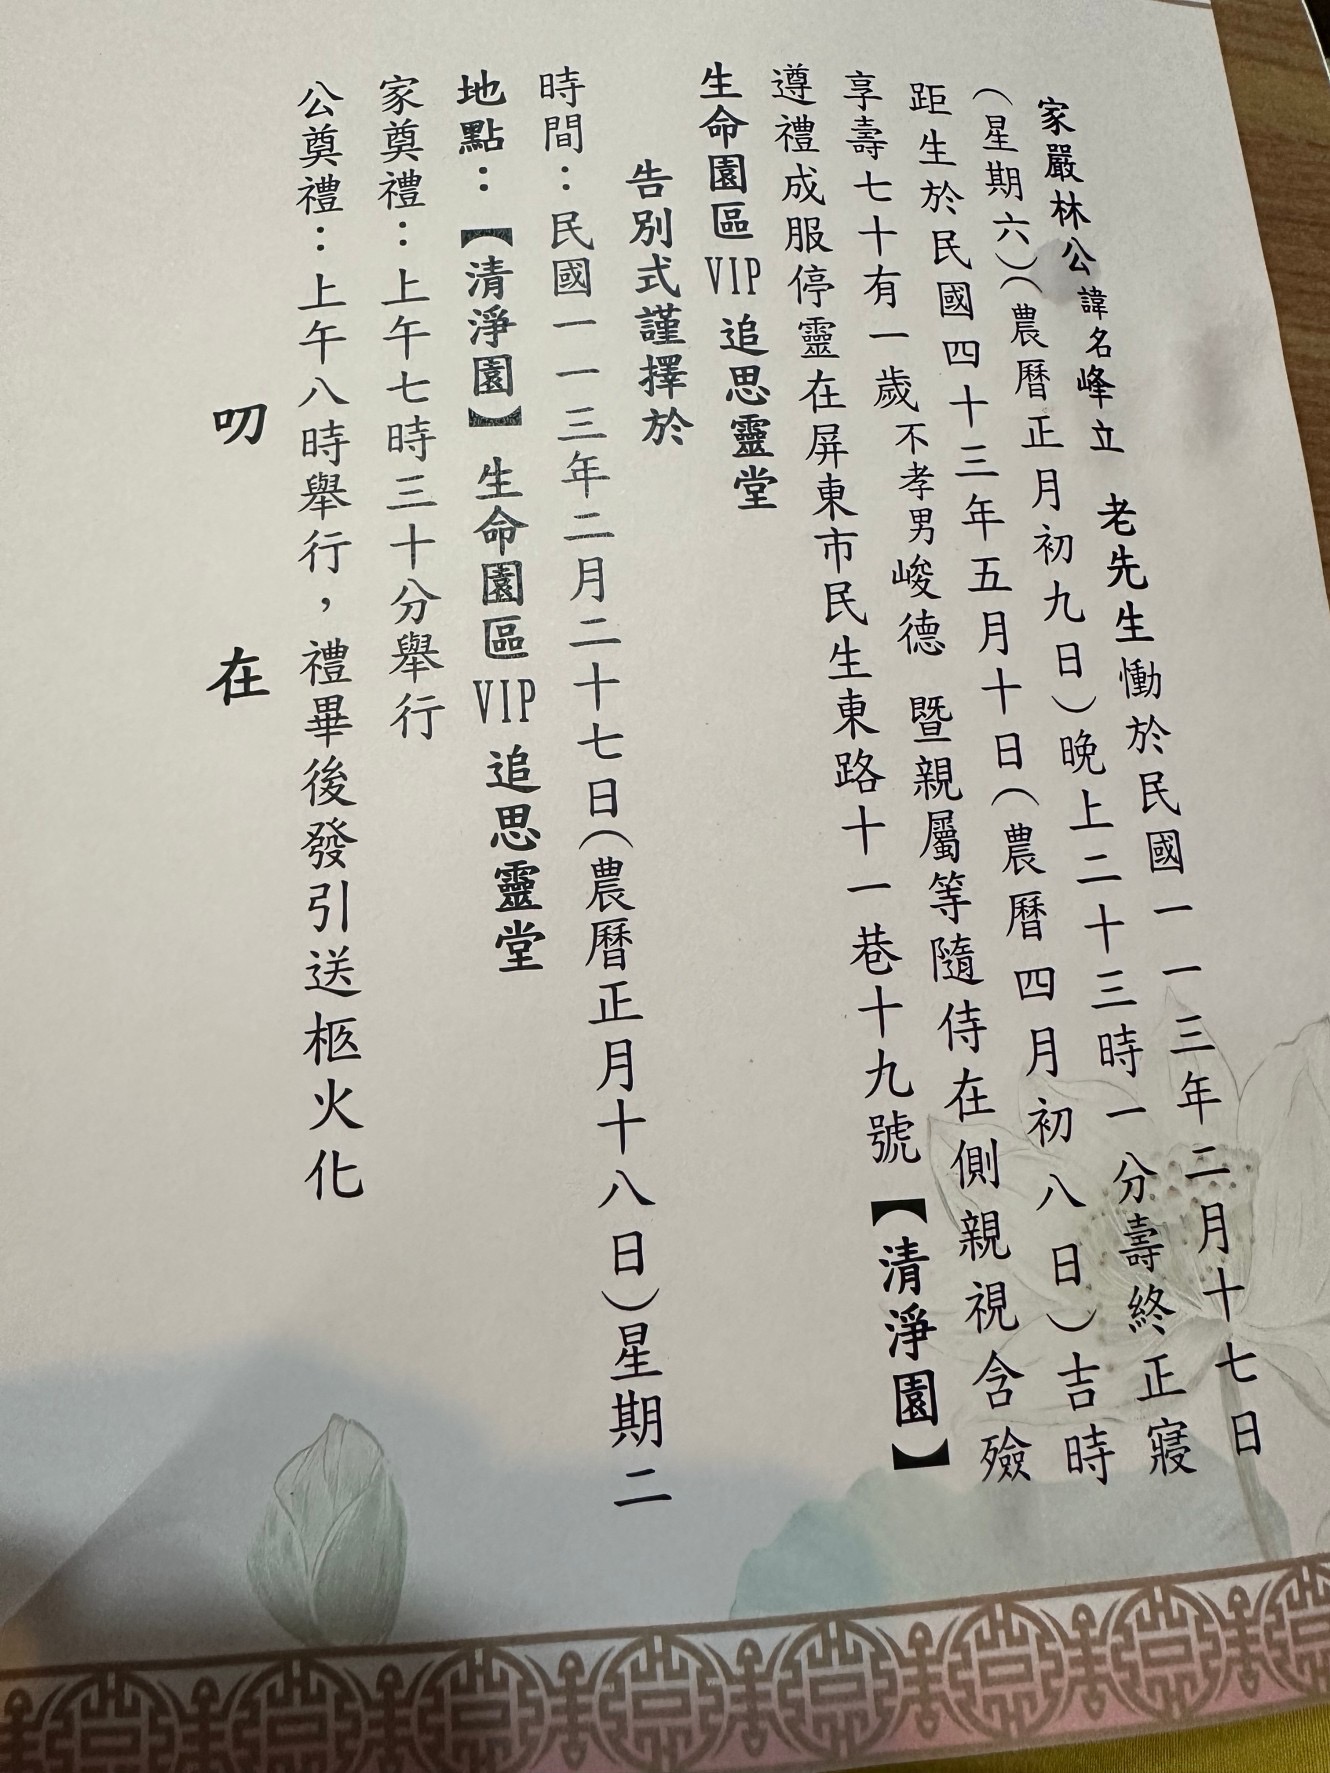 家嚴林公諱名峰立 老先生慟於民國一一三年二月十七日
（星期六）（農曆正月初九日）晚上二十三時一分壽終正寢
距生於民國四十三年五月十日（農曆四月初八日）吉時
享壽七十有一歲不孝男峻德 暨親屬等隨侍在側親視含殮
遵禮成服停靈在屏東市民生東路十一巷十九號【清淨園】
生命園區VIP追思靈堂
告別式謹擇於
時間：民國一一三年二月二十七日（農曆正月十八日）星期二
地點：【清淨園】生命園區VIP追思靈堂
家奠禮：上午七時三十分舉行
公奠禮：上午八時舉行，禮畢後發引送柩火化
叨 在